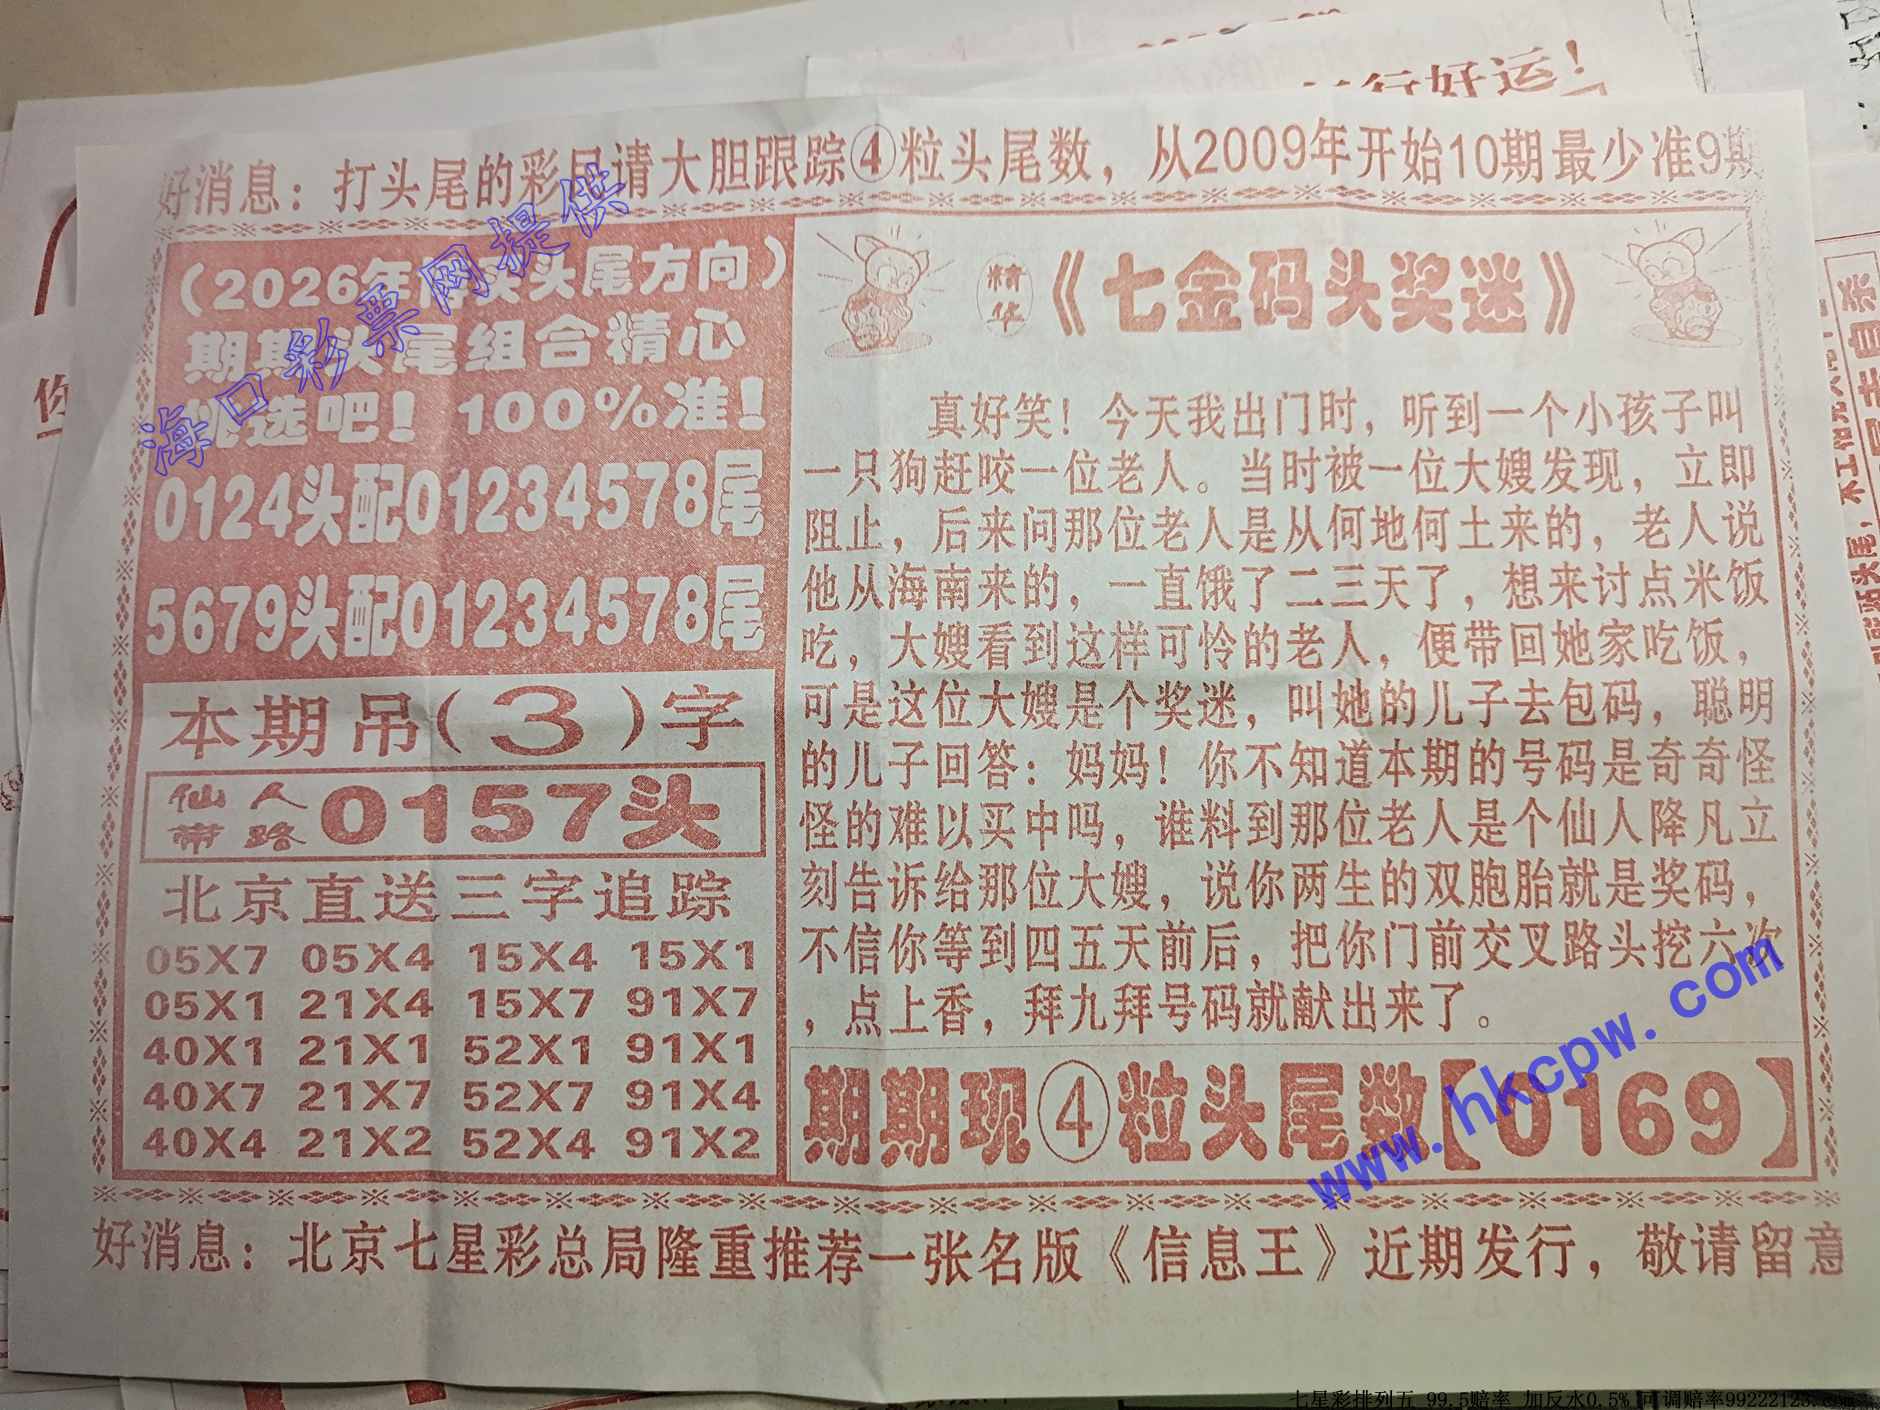 行好运!
好消息：打头尾的彩民请大胆跟踪④粒头尾数，从2009年开始10期最少准9期
（2026年 头尾方向）
期期头尾组合精心
挑选吧！100%准！
0124头配01234578尾
5679头配01234578尾
本期吊(3)字
仙人带路 0157头
北京直送三字追踪
05X7 05X4 15X4 15X1
05X1 21X4 15X7 91X7
40X1 21X1 52X1 91X1
40X7 21X7 52X7 91X4
40X4 21X2 52X4 91X2
精华《七金码头奖迷》
真好笑！今天我出门时，听到一个小孩子叫
一只狗赶咬一位老人。当时被一位大嫂发现，立即
阻止，后来问那位老人是从何地何土来的，老人说
他从海南来的，一直饿了二三天了，想来讨点米饭
吃，大嫂看到这样可怜的老人，便带回她家吃饭，
可是这位大嫂是个奖迷，叫她的儿子去包码，聪明
的儿子回答：妈妈！你不知道本期的号码是奇奇怪
怪的难以买中吗，谁料到那位老人是个仙人降凡立
刻告诉给那位大嫂，说你两生的双胞胎就是奖码，
不信你等到四五天前后，把你门前交叉路头挖六次
，点上香，拜九拜号码就献出来了。
期期现④粒头尾数【0169】
好消息：北京七星彩总局隆重推荐一张名版《信息王》近期发行，敬请留意
海口彩票网提供
www.hkcpw.com
七星彩排列五 99.5赔率 加反水0.5% 可调赔率99222123.com